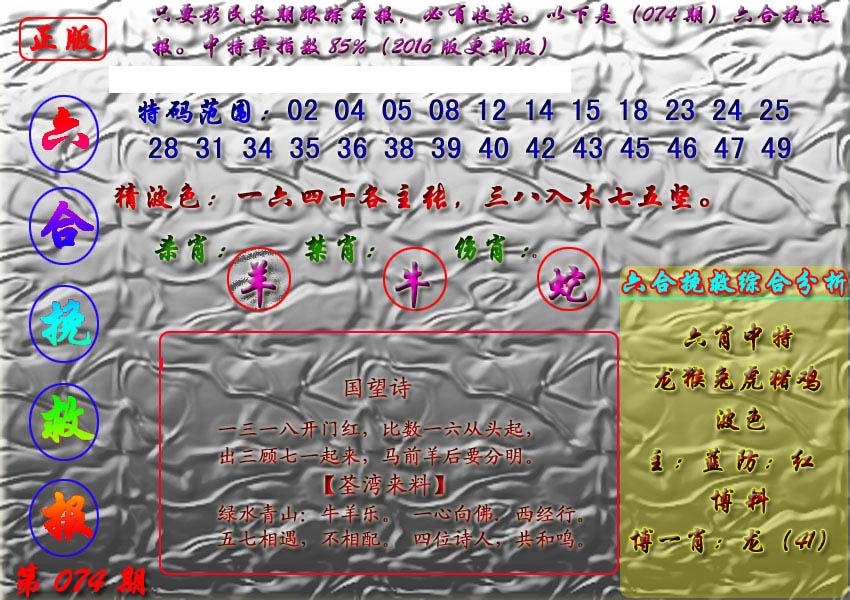 正版
只要彩民长期跟踪本报，必有收获。以下是（074期）六合挽救
报。中特率指数85%（2016版更新版）
六合挽救报
第074期
特码范围：02 04 05 08 12 14 15 18 23 24 25
28 31 34 35 36 38 39 40 42 43 45 46 47 49
猜波色：一六四十各主张，三八入木七五坚。
杀肖：羊 禁肖：牛 伤肖：蛇
国望诗
一三一八开门红，比数一六从头起，
出三顾七一起来，马前羊后要分明。
【荃湾来料】
绿水青山：牛羊乐。 一心向佛．西经行。
五七相遇，不相配。 四位诗人，共和鸣。
六合挽救综合分析
六肖中特
龙猴兔虎猪鸡
波色
主：蓝防：红
博料
博一肖：龙（41）